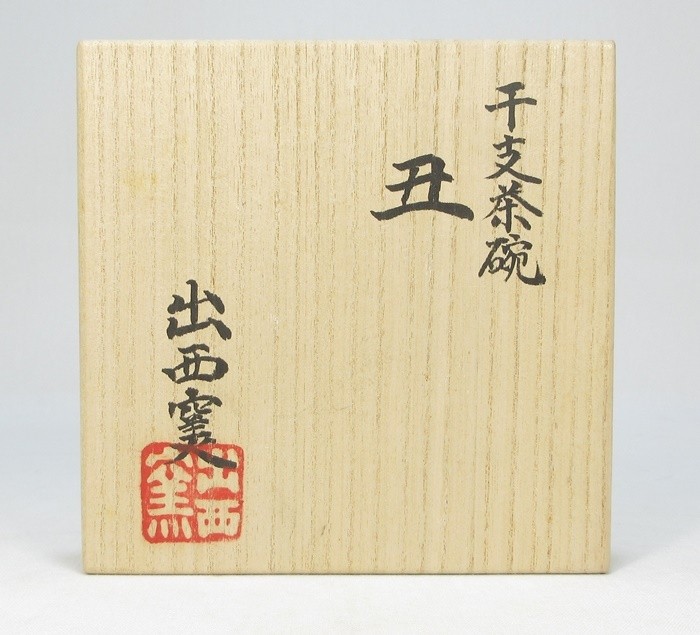 干支茶碗
丑
出西窯
出西窯